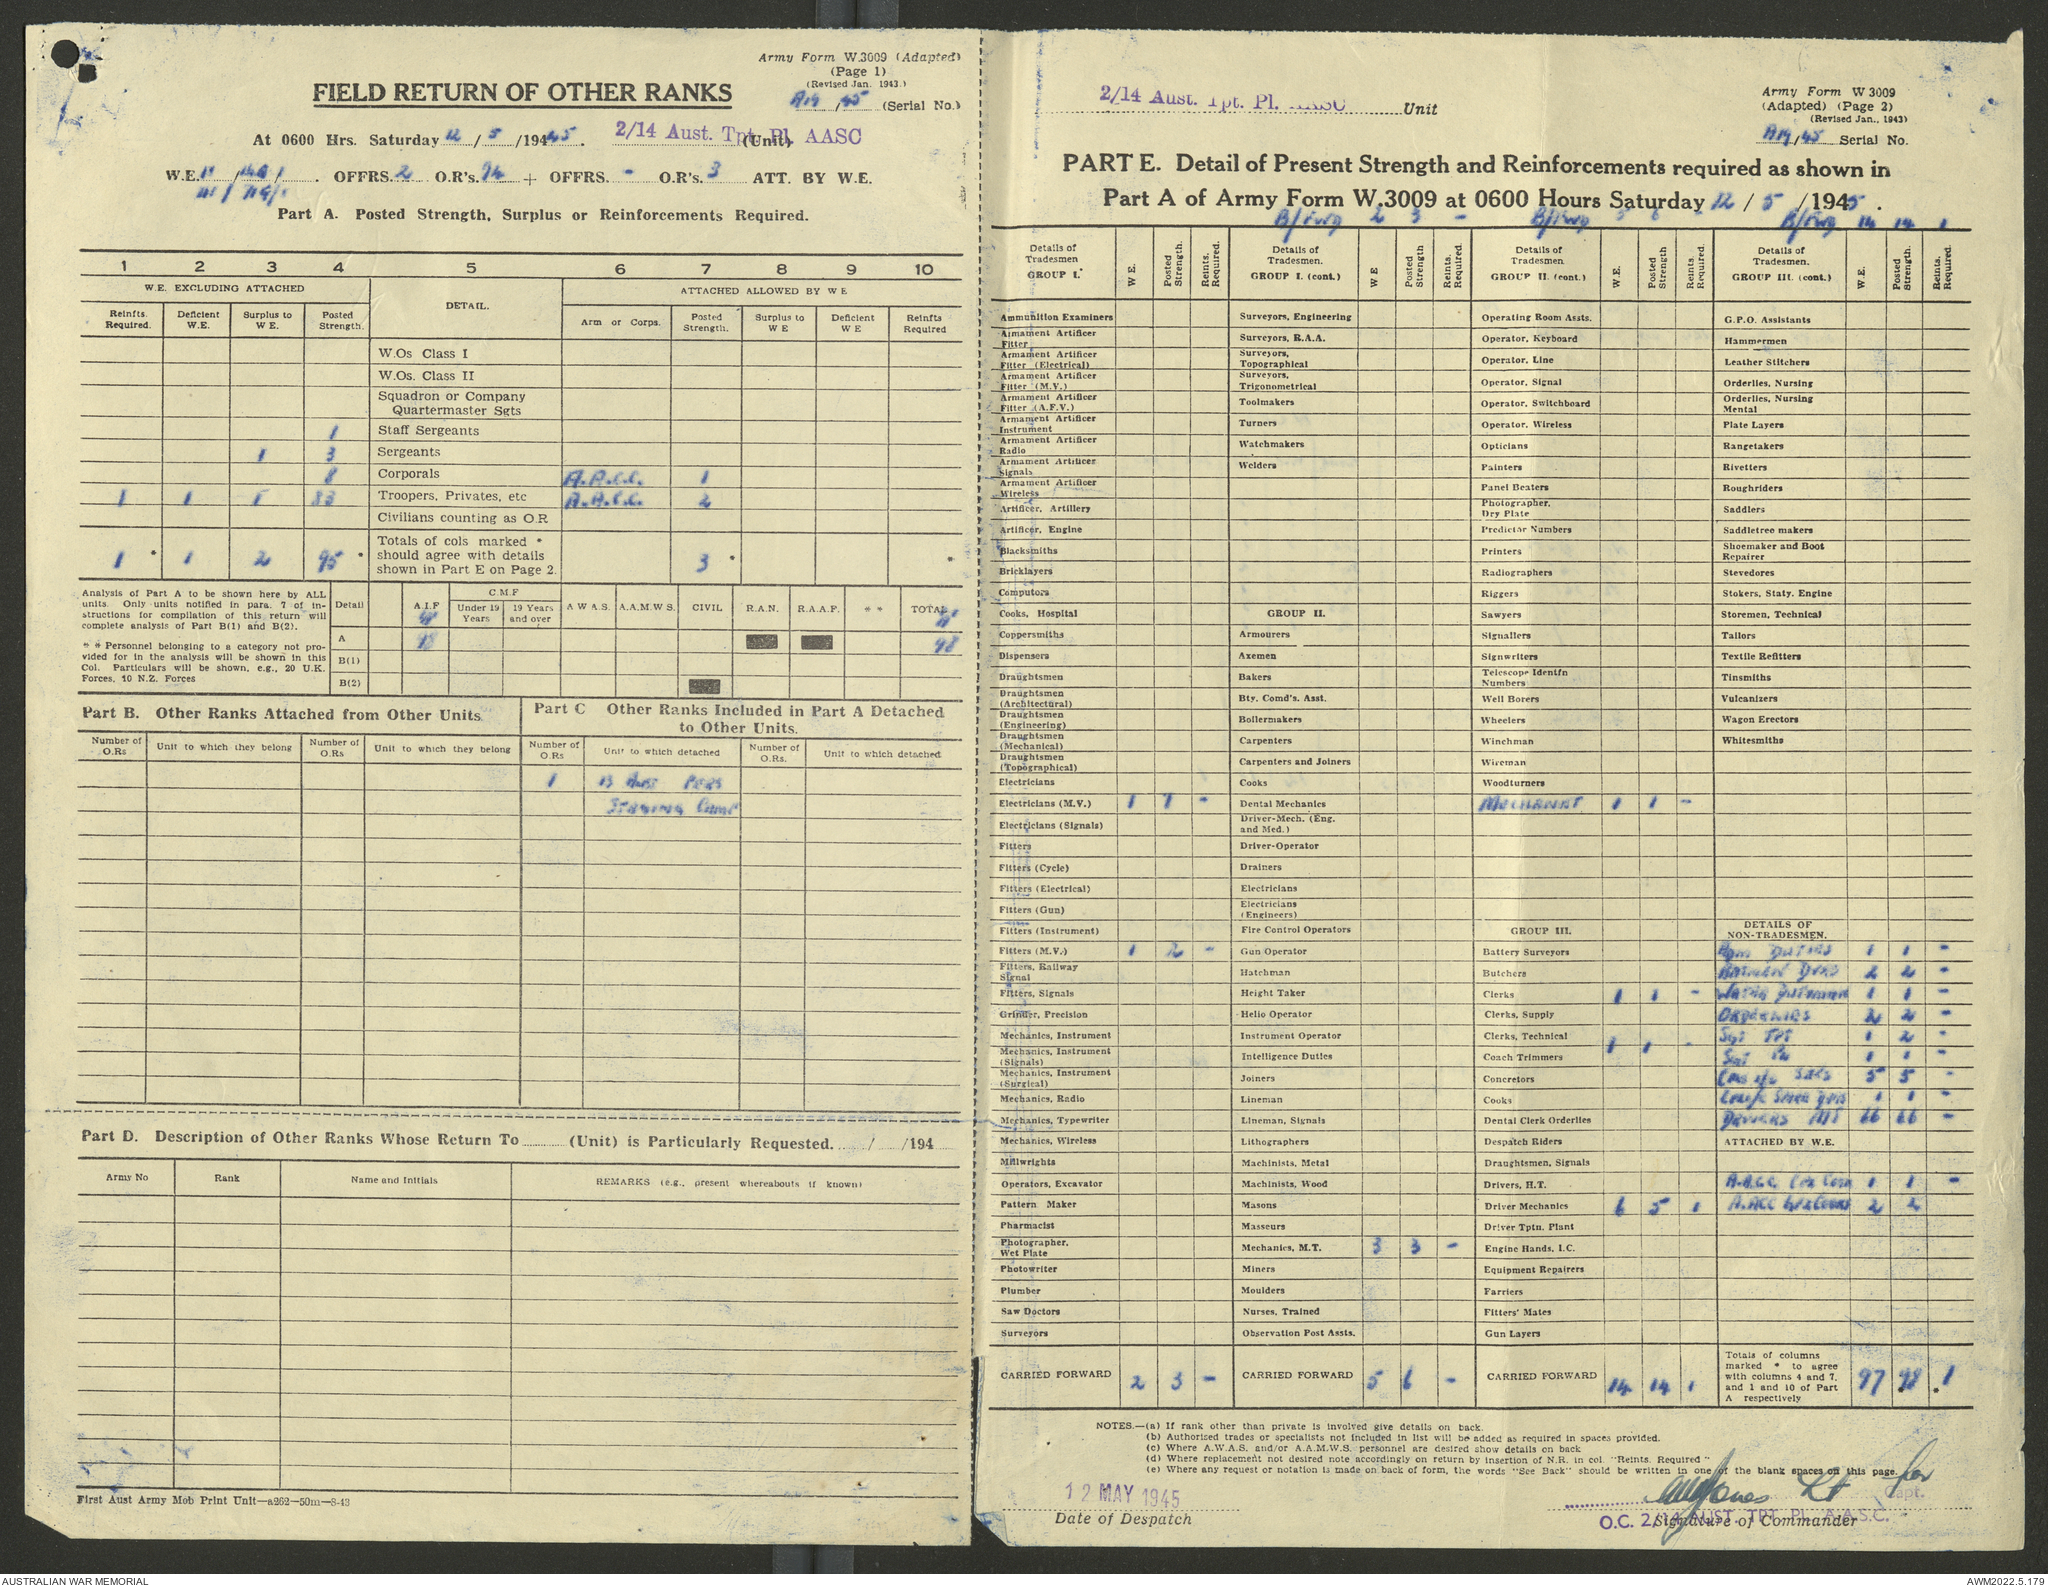 Army Form W.3009 (Adapted)
(Page 1)
(Revised Jan. 1943.)
FIELD RETURN OF OTHER RANKS
A19/45 (Serial No.)
At 0600 Hrs. Saturday 12/5/1945. 2/14 Aust. Tpt. Pl. AASC (Unit)
W.E. OFFRS. 2 O.R's. 94 + OFFRS. - O.R's. 3 ATT. BY W.E.
Part A. Posted Strength, Surplus or Reinforcements Required.
1 2 3 4 5 6 7 8 9 10
W.E. EXCLUDING ATTACHED DETAIL. ATTACHED ALLOWED BY W E
Reinfts. Required. Deficient W.E. Surplus to W E. Posted Strength. Arm or Corps. Posted Strength. Surplus to W E Deficient W E Reinfts Required
W.Os Class I
W.Os. Class II
Squadron or Company
Quartermaster Sgts
1 Staff Sergeants
1 3 Sergeants
8 Corporals A.A.C.C. 1
1 1 1 83 Troopers, Privates, etc A.A.C.C. 2
Civilians counting as O.R
Totals of cols marked *
should agree with details
1 * 1 2 95 * shown in Part E on Page 2. 3 * *
Analysis of Part A to be shown here by ALL
units. Only units notified in para. 7 of in-
structions for compilation of this return will
complete analysis of Part B(1) and B(2).
* * Personnel belonging to a category not pro-
vided for in the analysis will be shown in this
Col. Particulars will be shown, e.g., 20 U.K.
Forces, 10 N.Z. Forces
Detail A.I.F C.M.F Under 19 Years 19 Years and over A W A S. A.A.M.W S. CIVIL R.A.N. R.A.A.F. * * TOTAL
A 98 98
B(1)
B(2)
Part B. Other Ranks Attached from Other Units
Number of O.Rs Unit to which they belong Number of O.Rs Unit to which they belong
Part C Other Ranks Included in Part A Detached
to Other Units.
Number of O.Rs Unit to which detached Number of O.Rs. Unit to which detached
1 13 Aust Pers
Staging Camp
Part D. Description of Other Ranks Whose Return To (Unit) is Particularly Requested. / /194
Army No Rank Name and Initials REMARKS (e.g., present whereabouts if known)
First Aust Army Mob Print Unit—a262—50m—8-43
2/14 Aust. Tpt. Pl. AASC Unit
Army Form W 3009
(Adapted) (Page 2)
(Revised Jan., 1943)
A19/45 Serial No.
PART E. Detail of Present Strength and Reinforcements required as shown in
Part A of Army Form W.3009 at 0600 Hours Saturday 12/5/1945.
B/Fwd 2 3 - B/Fwd 5 6 - B/Fwd 14 14 1
Details of Tradesmen GROUP I. W E. Posted Strength. Reints. Required.
Ammunition Examiners
Armament Artificer Fitter
Armament Artificer Fitter (Electrical)
Armament Artificer Fitter (M.V.)
Armament Artificer Fitter (A.F.V.)
Armament Artificer Instrument
Armament Artificer Radio
Armament Artificer Signals
Armament Artificer Wireless
Artificer, Artillery
Artificer, Engine
Blacksmiths
Bricklayers
Computors
Cooks, Hospital
Coppersmiths
Dispensers
Draughtsmen
Draughtsmen (Architectural)
Draughtsmen (Engineering)
Draughtsmen (Mechanical)
Draughtsmen (Topographical)
Electricians
Electricians (M.V.) 1 1 -
Electricians (Signals)
Fitters
Fitters (Cycle)
Fitters (Electrical)
Fitters (Gun)
Fitters (Instrument)
Fitters (M.V.) 1 2 -
Fitters, Railway Signal
Fitters, Signals
Grinder, Precision
Mechanics, Instrument
Mechanics, Instrument (Signals)
Mechanics, Instrument (Surgical)
Mechanics, Radio
Mechanics, Typewriter
Mechanics, Wireless
Millwrights
Operators, Excavator
Pattern Maker
Pharmacist
Photographer, Wet Plate
Photowriter
Plumber
Saw Doctors
Surveyors
CARRIED FORWARD 2 3 -
Details of Tradesmen. GROUP I. (cont.) W E Posted Strength Reints. Required.
Surveyors, Engineering
Surveyors, R.A.A.
Surveyors, Topographical
Surveyors, Trigonometrical
Toolmakers
Turners
Watchmakers
Welders
GROUP II.
Armourers
Axemen
Bakers
Bty. Comd's. Asst.
Boilermakers
Carpenters
Carpenters and Joiners
Cooks
Dental Mechanics
Driver-Mech. (Eng. and Med.)
Driver-Operator
Drainers
Electricians
Electricians (Engineers)
Fire Control Operators
Gun Operator
Hatchman
Height Taker
Helio Operator
Instrument Operator
Intelligence Duties
Joiners
Lineman
Lineman, Signals
Lithographers
Machinists, Metal
Machinists, Wood
Masons
Masseurs
Mechanics, M.T. 3 3 -
Miners
Moulders
Nurses, Trained
Observation Post Assts.
CARRIED FORWARD 5 6 -
Details of Tradesmen. GROUP II. (cont.) W.E. Posted Strength Reints. Required.
Operating Room Assts.
Operator, Keyboard
Operator, Line
Operator, Signal
Operator, Switchboard
Operator, Wireless
Opticians
Painters
Panel Beaters
Photographer, Dry Plate
Predictor Numbers
Printers
Radiographers
Riggers
Sawyers
Signallers
Signwriters
Telescope Identfn Numbers
Well Borers
Wheelers
Winchman
Wireman
Woodturners
Mechanist 1 1 -
GROUP III.
Battery Surveyors
Butchers
Clerks 1 1 -
Clerks, Supply
Clerks, Technical 1 1 -
Coach Trimmers
Concretors
Cooks
Dental Clerk Orderlies
Despatch Riders
Draughtsmen, Signals
Drivers, H.T.
Driver Mechanics 6 5 1
Driver Tptn. Plant
Engine Hands, I.C.
Equipment Repairers
Farriers
Fitters' Mates
Gun Layers
CARRIED FORWARD 14 14 1
Details of Tradesmen. GROUP III. (cont.) W.E. Posted Strength. Reints. Required.
G.P.O. Assistants
Hammermen
Leather Stitchers
Orderlies, Nursing
Orderlies, Nursing Mental
Plate Layers
Rangetakers
Rivetters
Roughriders
Saddlers
Saddletree makers
Shoemaker and Boot Repairer
Stevedores
Stokers, Staty. Engine
Storemen, Technical
Tailors
Textile Refitters
Tinsmiths
Vulcanizers
Wagon Erectors
Whitesmiths
DETAILS OF NON-TRADESMEN.
Adm Duties 1 1 -
Batmen Dvrs 2 2 -
Water Dutyman 1 1 -
Orderlies 2 2 -
Sgt Tpt 1 2 -
Sgt Pn 1 1 -
Cpls i/c Secs 5 5 -
1 1 -
Drivers MT 66 66 -
ATTACHED BY W.E.
A.A.C.C. Cpl Cook 1 1 -
A.ACC Cooks 2 2
Totals of columns
marked * to agree
with columns 4 and 7,
and 1 and 10 of Part
A respectively 97 98 1
NOTES.—(a) If rank other than private is involved give details on back.
(b) Authorized trades or specialists not included in list will be added as required in spaces provided.
(c) Where A.W.A.S. and/or A.A.M.W.S. personnel are desired show details on back
(d) Where replacement not desired note accordingly on return by insertion of N.R. in col. "Reints. Required"
(e) Where any request or notation is made on back of form, the words "See Back" should be written in one of the blank spaces on this page.
12 MAY 1945
Date of Despatch
Jones Lt for
Capt.
O.C. 2/14 AUST. TPT. Pl. A.A.S.C.
Signature of Commander
AUSTRALIAN WAR MEMORIAL
AWM2022.5.179